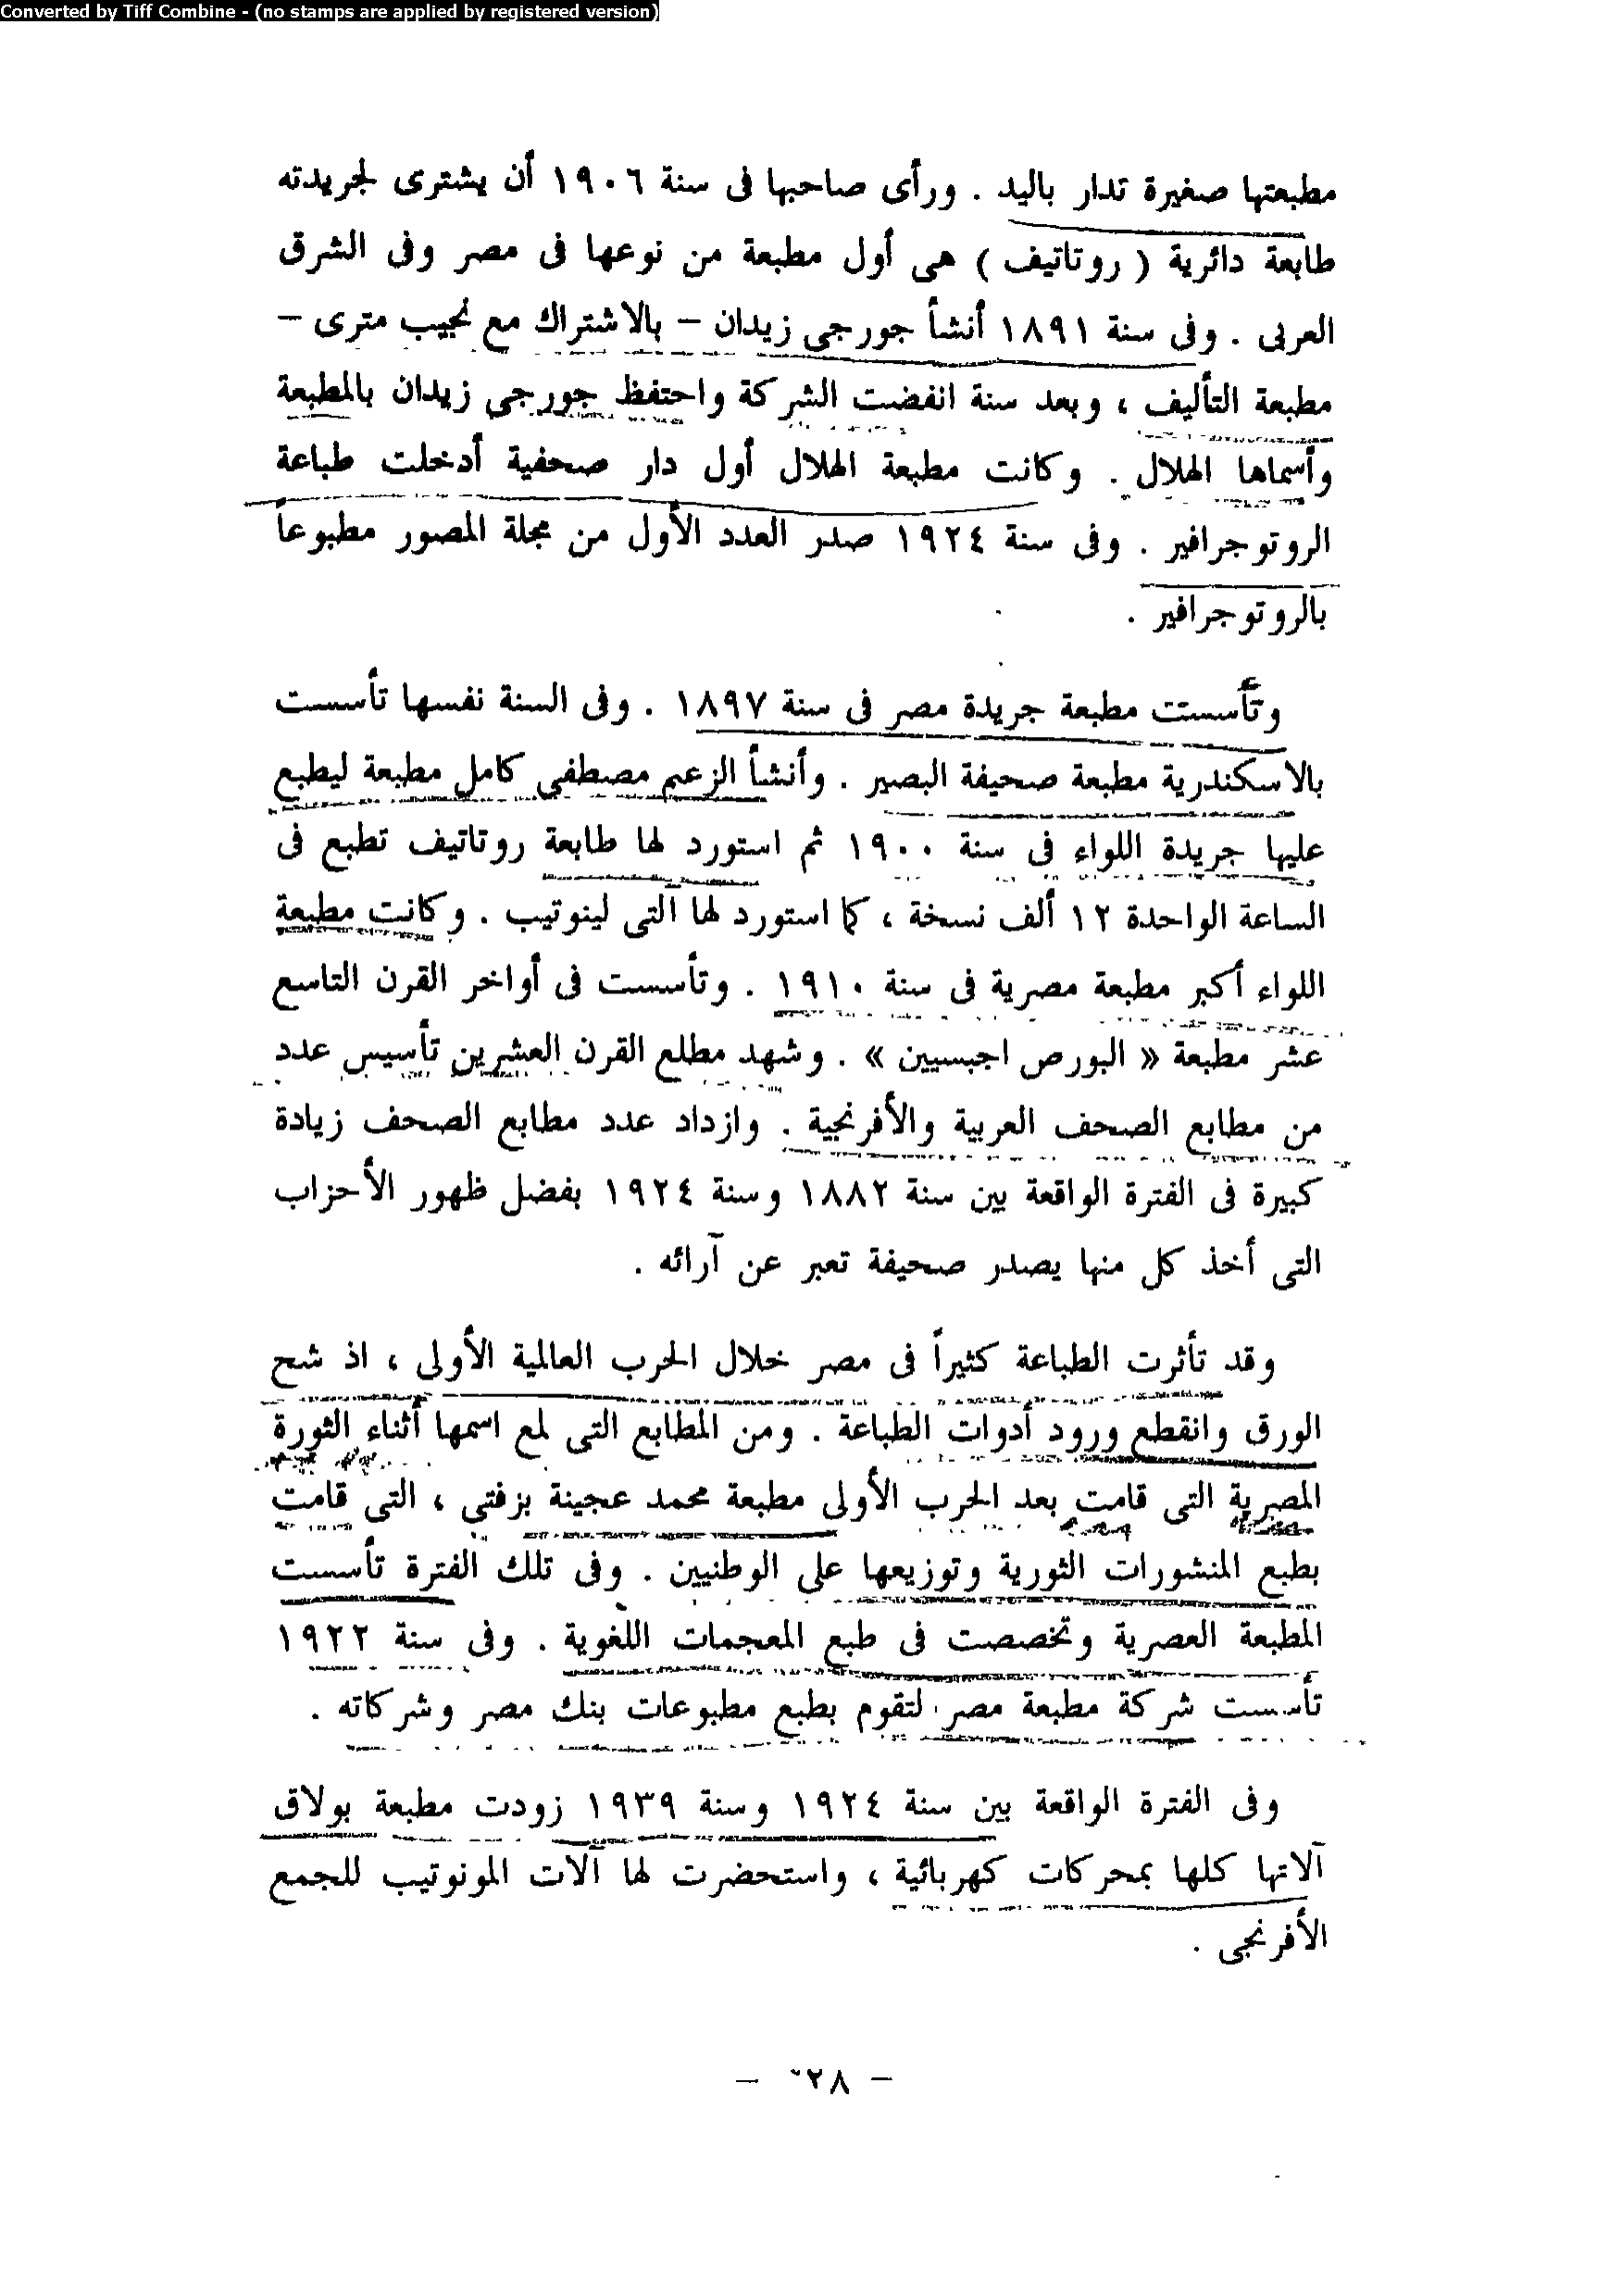 Converted by Tiff Combine - (no stamps are applied by registered version)
مطبعتها صغيرة تدار باليد . ورأى صاحبها فى سنة ١٩٠٦ أن يشترى لجريدته
طابعة دائرية ( روتاتيف ) هى أول مطبعة من نوعها فى مصر وفى الشرق
العربى . وفى سنة ١٨٩١ أنشأ جورجى زيدان – بالاشتراك مع نجيب مترى –
مطبعة التأليف ، وبعد سنة انفضت الشركة واحتفظ جورجى زيدان بالمطبعة
وأسماها الهلال . وكانت مطبعة الهلال أول دار صحفية أدخلت طباعة
الروتوجرافير . وفى سنة ١٩٢٤ صدر العدد الأول من مجلة المصور مطبوعاً
بالروتوجرافير .
وتأسست مطبعة جريدة مصر فى سنة ١٨٩٧ . وفى السنة نفسها تأسست
بالاسكندرية مطبعة صحيفة البصير . وأنشأ الزعيم مصطفى كامل مطبعة ليطبع
عليها جريدة اللواء فى سنة ١٩٠٠ ثم استورد لها طابعة روتاتيف تطبع فى
الساعة الواحدة ١٢ ألف نسخة ، كما استورد لها آلتى لينوتيب . وكانت مطبعة
اللواء أكبر مطبعة مصرية فى سنة ١٩١٠ . وتأسست فى أواخر القرن التاسع
عشر مطبعة « البورص اجبسيين » . وشهد مطلع القرن العشرين تأسيس عدد
من مطابع الصحف العربية والأفرنجية . وازداد عدد مطابع الصحف زيادة
كبيرة فى الفترة الواقعة بين سنة ١٨٨٢ وسنة ١٩٢٤ بفضل ظهور الأحزاب
التى أخذ كل منها يصدر صحيفة تعبر عن آرائه .
وقد تأثرت الطباعة كثيراً فى مصر خلال الحرب العالمية الأولى ، اذ شح
الورق وانقطع ورود أدوات الطباعة . ومن المطابع التى لمع اسمها أثناء الثورة
المصرية التى قامت بعد الحرب الأولى مطبعة محمد عجينة بزفتى ، التى قامت
بطبع المنشورات الثورية وتوزيعها على الوطنيين . وفى تلك الفترة تأسست
المطبعة العصرية وتخصصت فى طبع المعجمات اللغوية . وفى سنة ١٩٢٢
تأسست شركة مطبعة مصر لتقوم بطبع مطبوعات بنك مصر وشركاته .
وفى الفترة الواقعة بين سنة ١٩٢٤ وسنة ١٩٣٩ زودت مطبعة بولاق
آلاتها كلها بمحركات كهربائية ، واستحضرت لها آلات المونوتيب للجمع
الأفرنجى .